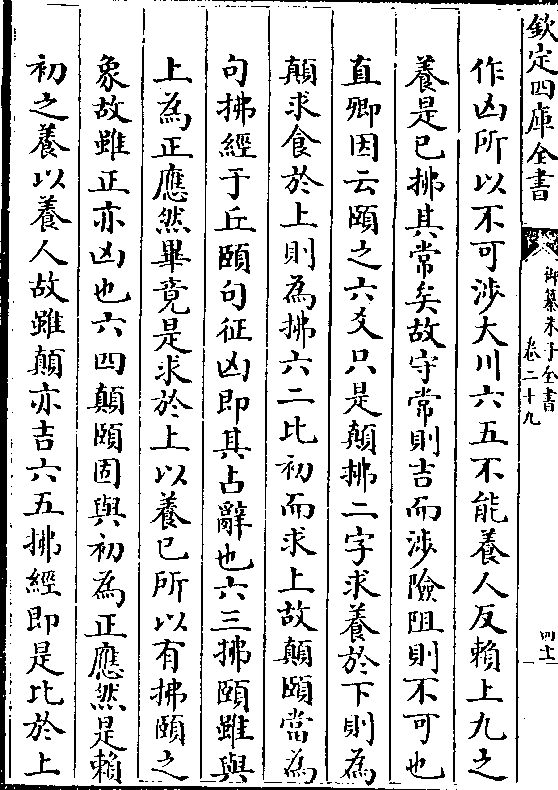 欽定四庫全書
御纂朱子全書
卷二十九
四十二
作凶所以不可涉大川六五不能養人反賴上九之
養是已拂其常矣故守常則吉而涉險阻則不可也
直卿因云頤之六爻只是顛拂二字求養於下則為
顛求食於上則為拂六二比初而求上故顛頤當為
句拂經于丘頤句征凶即其占辭也六三拂頤雖與
上為正應然畢竟是求於上以養已所以有拂頤之
象故雖正亦凶也六四顛頤固與初為正應然是賴
初之養以養人故雖顛亦吉六五拂經即是比於上